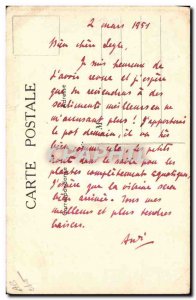 2 mars 1951
Bien chère
Je suis heureuse de
t'avoir revue et j'espère
que tu reviendras à des
sentiments meilleurs en ne
m'accusant plus ! J'apporterai
le pot demain, il va très
bien les petits
dans le pour les
plantes complètement aquatiques.
J'espère que la vitrine sera
bien animée. Tous mes
meilleurs et plus tendres
baisers.
André
CARTE POSTALE